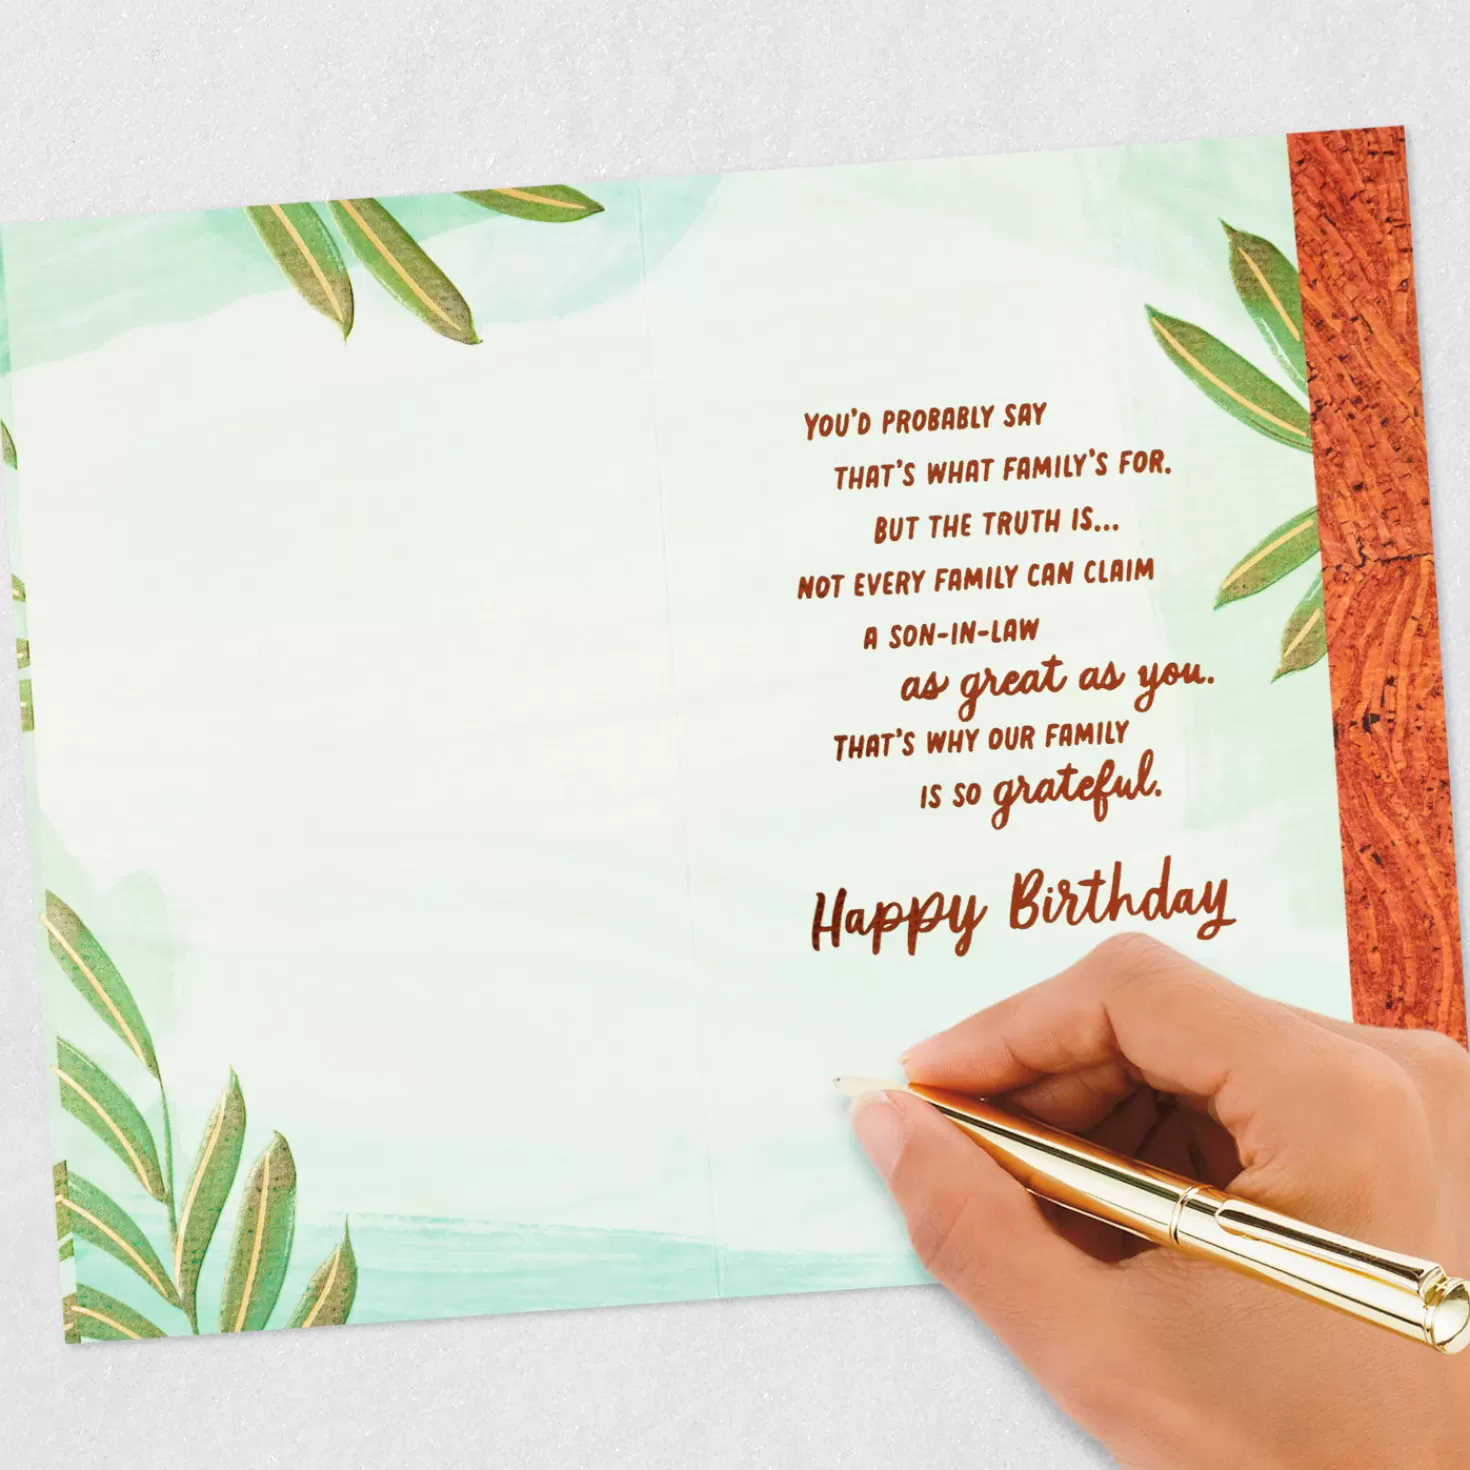 YOU'D PROBABLY SAY
THAT'S WHAT FAMILY'S FOR.
BUT THE TRUTH IS...
NOT EVERY FAMILY CAN CLAIM
A SON-IN-LAW
as great as you.
THAT'S WHY OUR FAMILY
IS SO grateful.
Happy Birthday